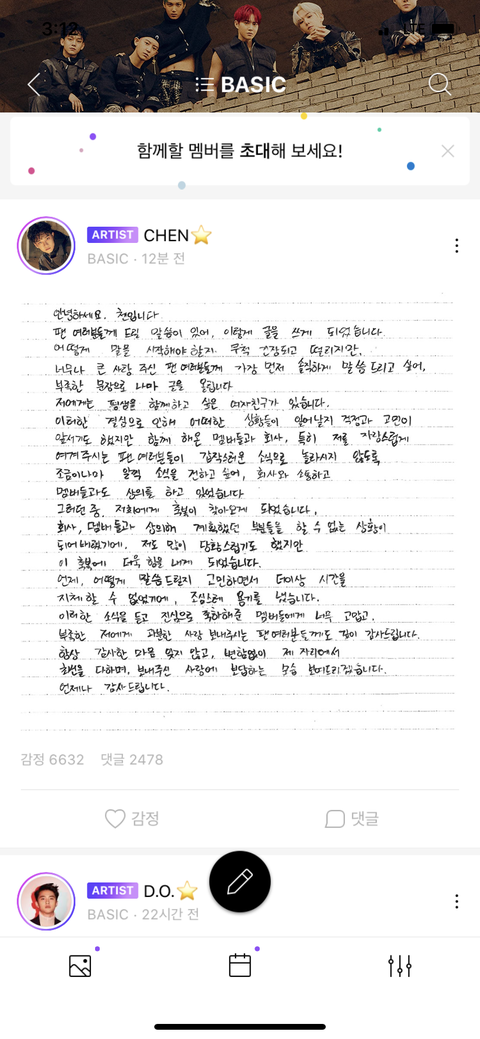 3:12
LTE
BASIC
함께할 멤버를 초대해 보세요!
ARTIST CHEN⭐
BASIC · 12분 전
안녕하세요. 첸입니다
팬 여러분들께 드릴 말씀이 있어, 이렇게 글을 쓰게 되었습니다.
어떻게 말을 시작해야 할지 무척 긴장되고 떨리지만,
너무나 큰 사랑 주신 팬 여러분들께 가장 먼저 솔직하게 말씀드리고 싶어,
부족한 문장으로 나마 글을 올립니다
저에게는 평생을 함께하고 싶은 여자친구가 있습니다.
이러한 결심으로 인해 어떠한 상황들이 일어날지 걱정과 고민이
앞서기도 했지만 함께 해온 멤버들과 회사, 특히 저를 자랑스럽게
여겨주시는 팬 여러분들이 갑작스러운 소식으로 놀라시지 않도록
조금이나마 일찍 소식을 전하고 싶어, 회사와 소통하고
멤버들과도 상의를 하고 있었습니다
그러던 중, 저희에게 축복이 찾아오게 되었습니다,
회사, 멤버들과 상의해 계획했던 부분들을 할 수 없는 상황이
되어버렸기에. 저도 많이 당황스럽기도 했지만
이 축복에 더욱 힘을 내게 되었습니다.
언제, 어떻게 말씀드릴지 고민하면서 더이상 시간을
지체할 수 없었기에, 조심스레 용기를 냈습니다.
이러한 소식을 듣고 진심으로 축하해준 멤버들에게 너무 고맙고,
부족한 저에게 과분한 사랑 보내주시는 팬 여러분들께도 깊이 감사드립니다.
항상 감사한 마음 잊지 않고, 변함없이 제 자리에서
최선을 다하며, 보내주신 사랑에 보답하는 모습 보여드리겠습니다.
언제나 감사드립니다.
감정 6632 댓글 2478
감정 댓글
ARTIST D.O.⭐
BASIC · 22시간 전